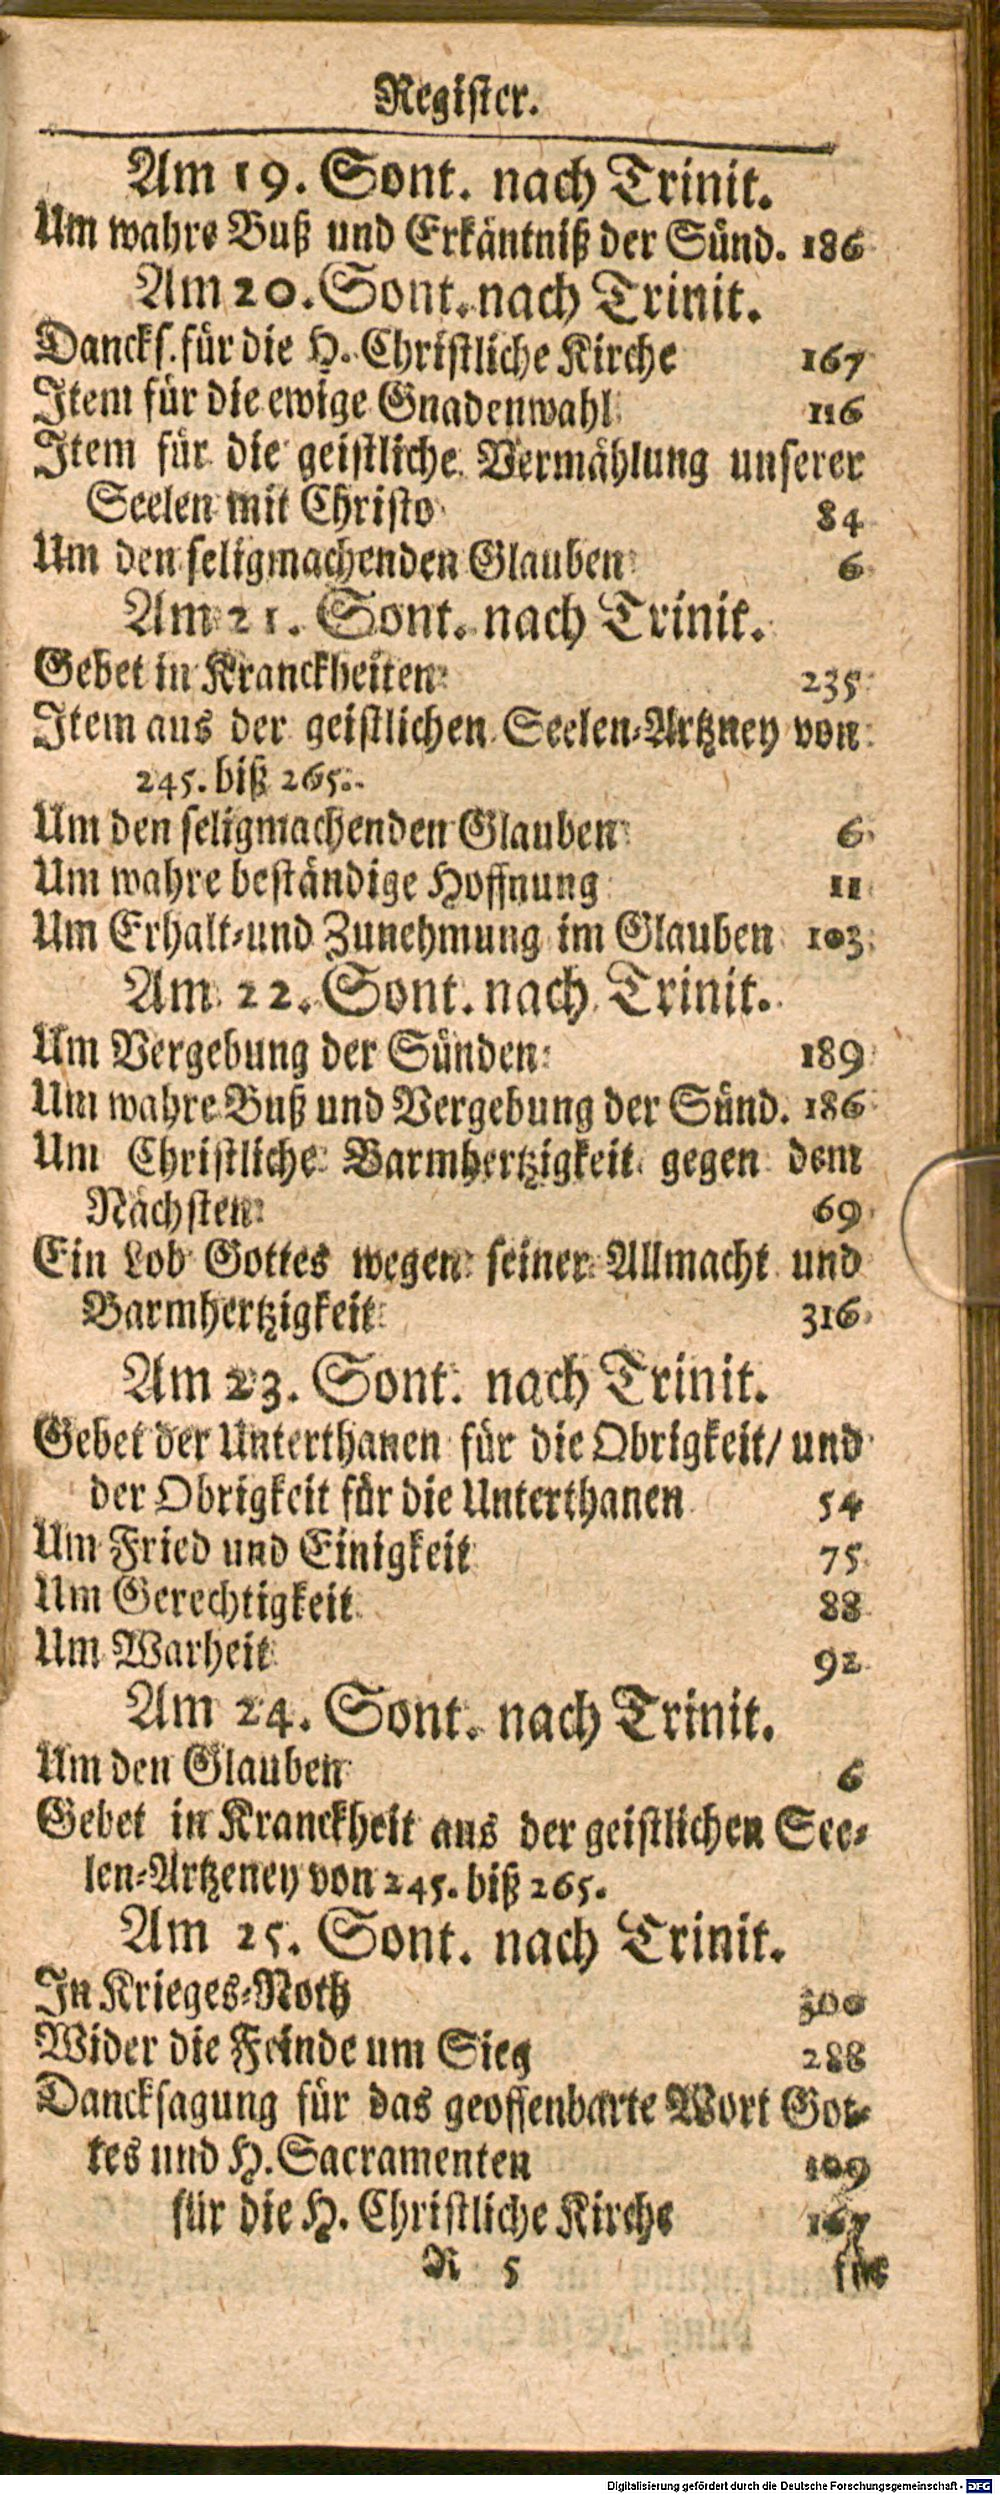 Register.
Am 19. Sont. nach Trinit.
Um wahre Buß und Erkäntniß der Sünd. 186
Am 20. Sont. nach Trinit.
Dancks. für die H. Christliche Kirche 167
Item für die ewige Gnadenwahl 116
Item für die geistliche Vermählung unserer
Seelen mit Christo 84
Um den seligmachenden Glauben 6
Am 21. Sont. nach Trinit.
Gebet in Kranckheiten 235
Item aus der geistlichen Seelen-Artzney von
245. biß 265.
Um den seligmachenden Glauben 6
Um wahre beständige Hoffnung 11
Um Erhalt-und Zunehmung im Glauben 103
Am 22. Sont. nach Trinit.
Um Vergebung der Sünden 189
Um wahre Buß und Vergebung der Sünd. 186
Um Christliche Barmhertzigkeit gegen dem
Nächsten 69
Ein Lob Gottes wegen seiner Allmacht und
Barmhertzigkeit 316
Am 23. Sont. nach Trinit.
Gebet der Unterthanen für die Obrigkeit/ und
der Obrigkeit für die Unterthanen 54
Um Fried und Einigkeit 75
Um Gerechtigkeit 88
Um Warheit 92
Am 24. Sont. nach Trinit.
Um den Glauben 6
Gebet in Kranckheit aus der geistlichen See-
len-Artzeney von 245. biß 265.
Am 25. Sont. nach Trinit.
In Krieges-Noth 300
Wider die Feinde um Sieg 288
Dancksagung für das geoffenbarte Wort Got-
tes und H. Sacramenten 109
für die H. Christliche Kirche 167
R 5 für
Digitalisierung gefördert durch die Deutsche Forschungsgemeinschaft - DFG